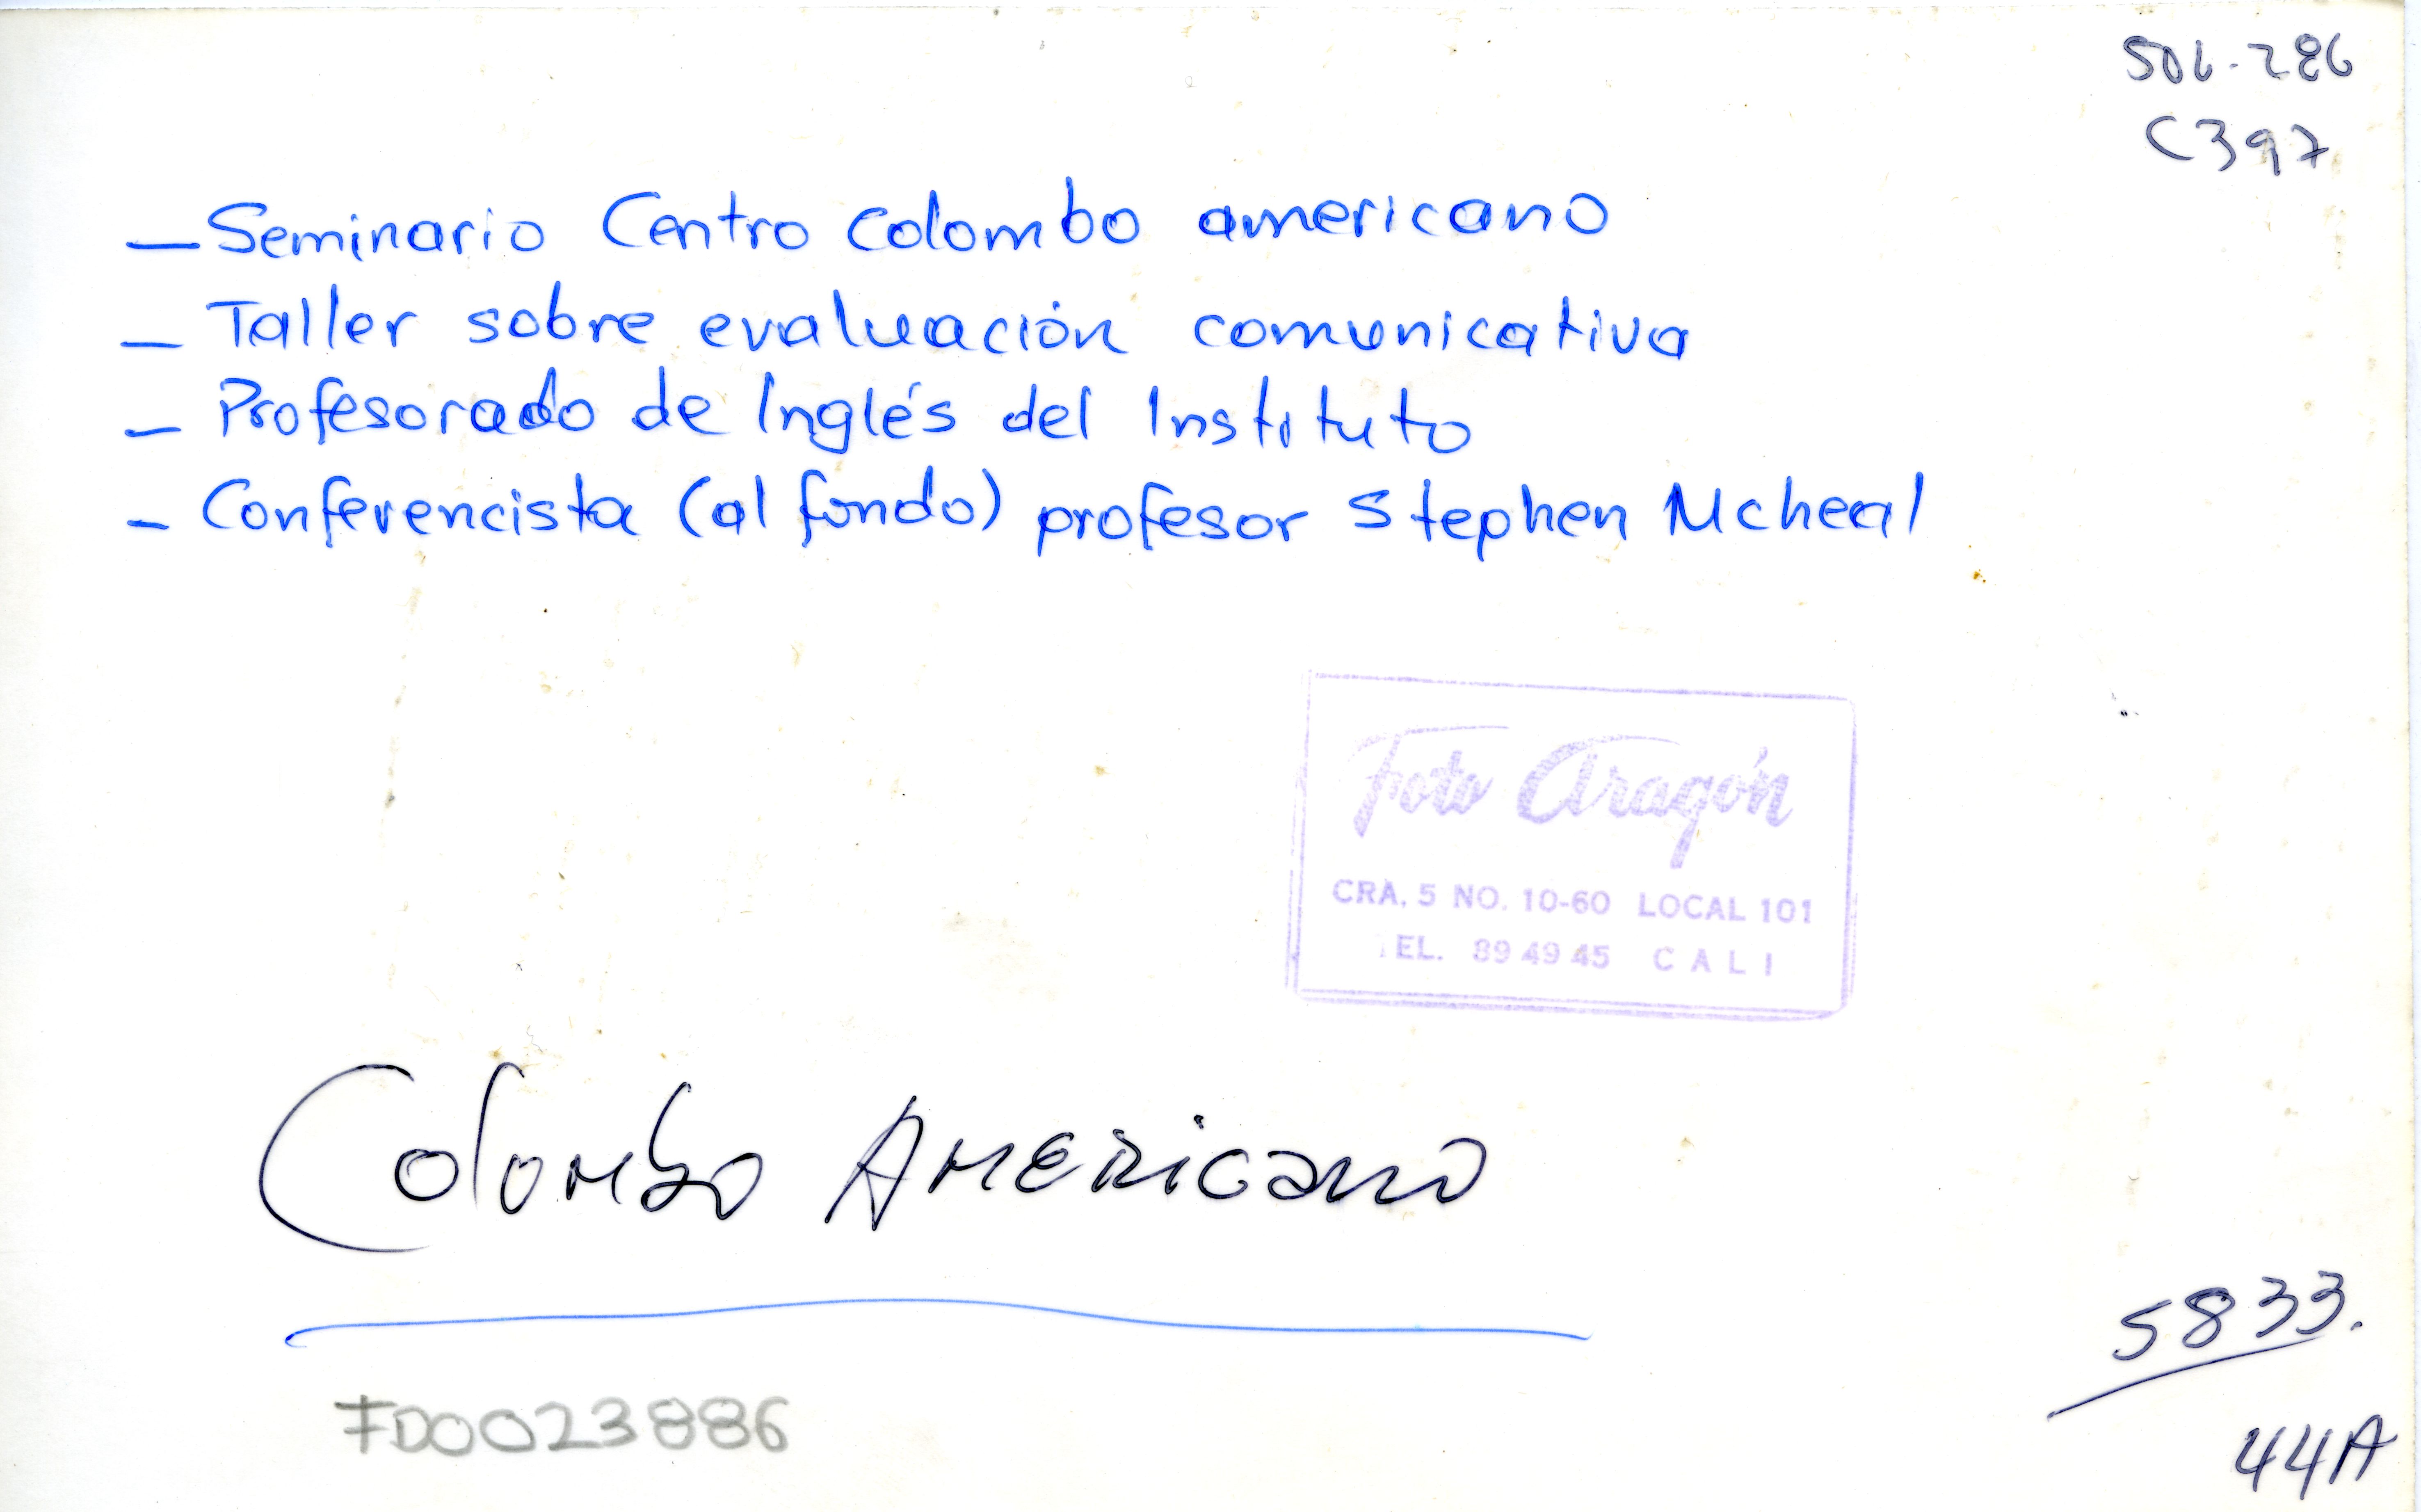 506-286
C397
- Seminario Centro Colombo americano
- Taller sobre evaluación comunicativa
- Profesorado de Inglés del Instituto
- Conferencista (al fondo) profesor Stephen Mcheal
Foto Aragón
CRA. 5 NO. 10-60 LOCAL 101
TEL. 89 49 45 CALI
Colombo Americano
5833.
FD0023886
44A